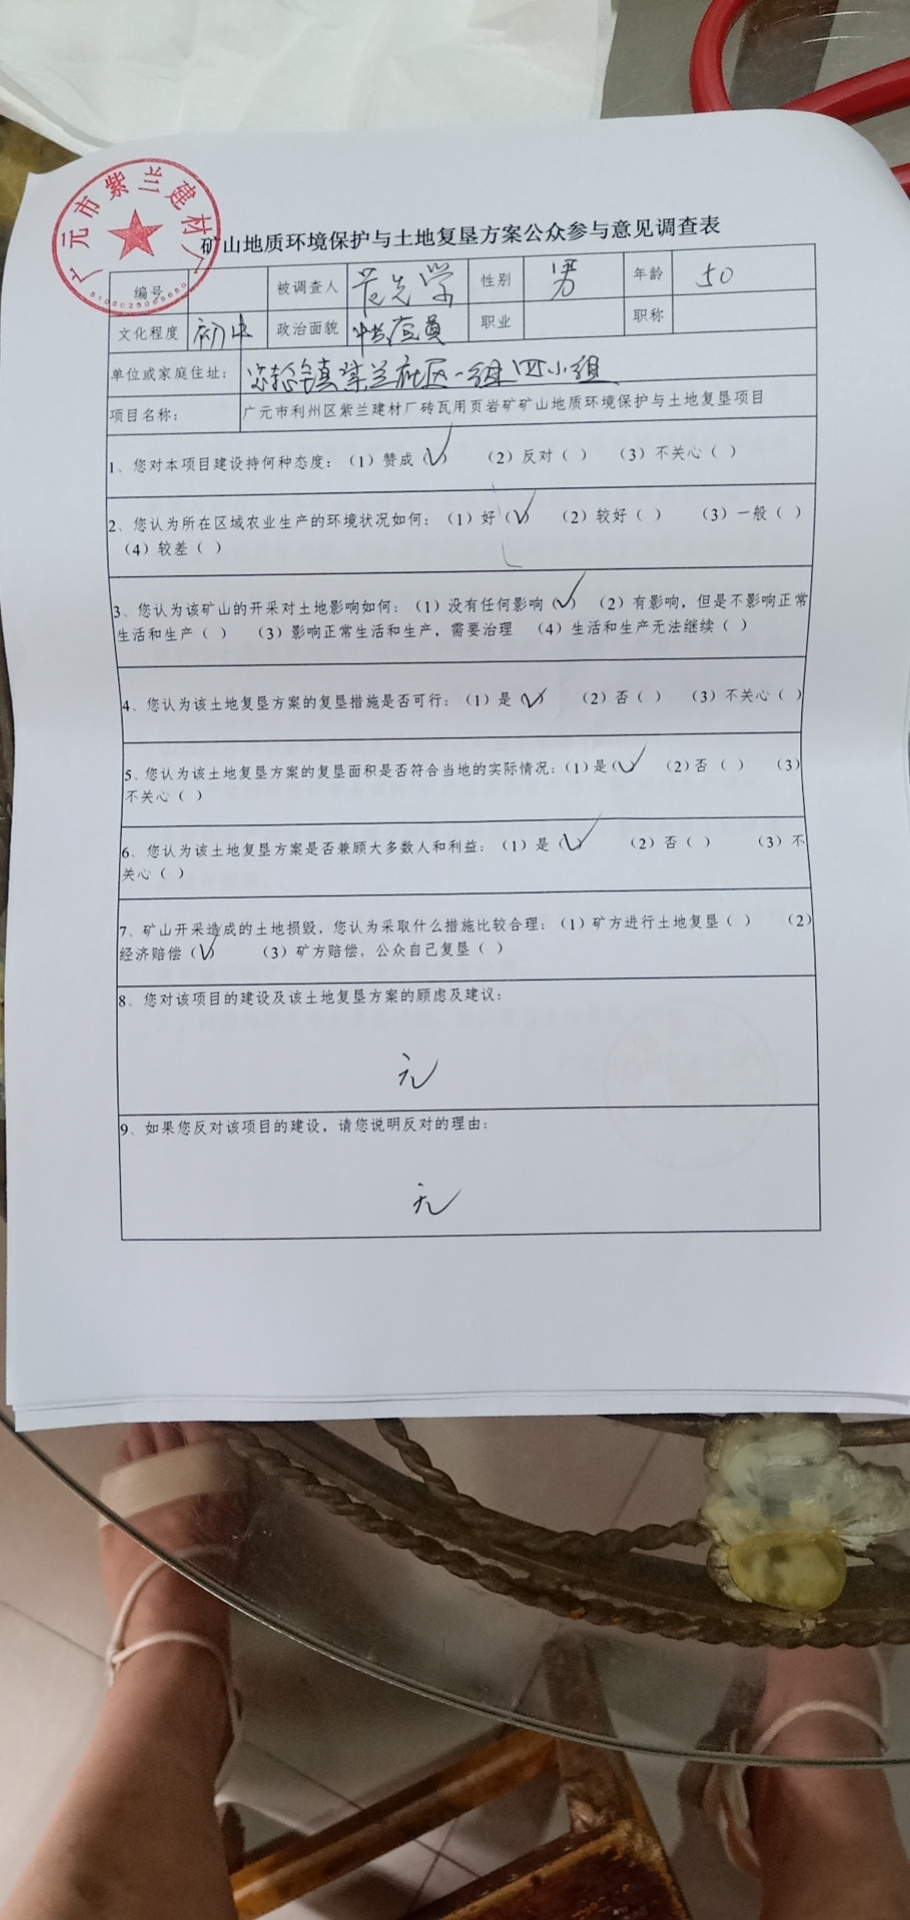 广元市紫兰建材厂
矿山地质环境保护与土地复垦方案公众参与意见调查表
编号 被调查人 先学 性别 男 年龄 50
文化程度 初中 政治面貌 中共党员 职业 职称
单位或家庭住址： 镇紫兰社区一组四小组
项目名称： 广元市利州区紫兰建材厂砖瓦用页岩矿矿山地质环境保护与土地复垦项目
1、您对本项目建设持何种态度：（1）赞成（√） （2）反对（ ） （3）不关心（ ）
2、您认为所在区域农业生产的环境状况如何：（1）好（√） （2）较好（ ） （3）一般（ ）
（4）较差（ ）
3、您认为该矿山的开采对土地影响如何：（1）没有任何影响（√） （2）有影响，但是不影响正常
生活和生产（ ） （3）影响正常生活和生产，需要治理 （4）生活和生产无法继续（ ）
4、您认为该土地复垦方案的复垦措施是否可行：（1）是（√） （2）否（ ） （3）不关心（ ）
5、您认为该土地复垦方案的复垦面积是否符合当地的实际情况：（1）是（√） （2）否（ ） （3）
不关心（ ）
6、您认为该土地复垦方案是否兼顾大多数人和利益：（1）是（√） （2）否（ ） （3）不
关心（ ）
7、矿山开采造成的土地损毁，您认为采取什么措施比较合理：（1）矿方进行土地复垦（ ） （2）
经济赔偿（√） （3）矿方赔偿，公众自己复垦（ ）
8、您对该项目的建设及该土地复垦方案的顾虑及建议：
无
9、如果您反对该项目的建设，请您说明反对的理由：
无